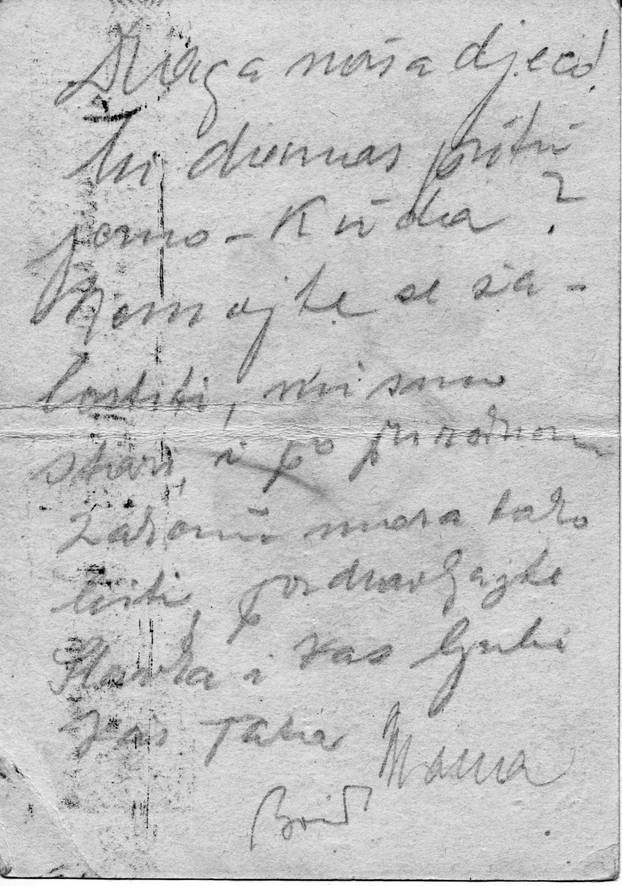 Draga naša djeco!
Mi danas putu
jemo - Kuda?
Nemojte se ža-
lostiti, mi smo
stari, i po prirodnom
zakonu mora tako
biti, pozdravljajte
Slavka i Vas ljubi
Vaš Tata Mama